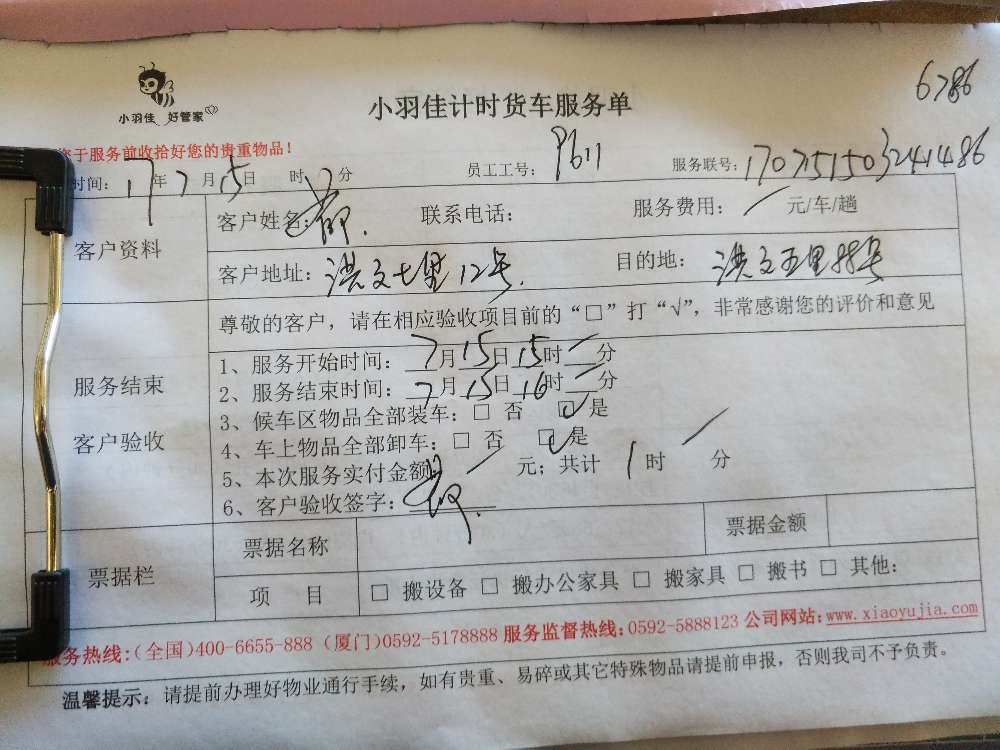 6786
小羽佳 好管家
小羽佳计时货车服务单
于服务前收拾好您的贵重物品！
时间：17年7月15日 时 分 员工工号：P611 服务联号：1707151503241486
客户资料
客户姓名： 联系电话： 服务费用：／元/车/趟
客户地址：洪文七里12号. 目的地：洪文五里88号
服务结束
客户验收
尊敬的客户，请在相应验收项目前的“□”打“√”，非常感谢您的评价和意见
1、服务开始时间：7月15日15时／分
2、服务结束时间：7月15日16时／分
3、候车区物品全部装车：□ 否 ☑ 是
4、车上物品全部卸车：□ 否 ☑ 是
5、本次服务实付金额／元；共计 1时／分
6、客户验收签字：
票据栏
票据名称 票据金额
项 目 □ 搬设备 □ 搬办公家具 □ 搬家具 □ 搬书 □ 其他：
服务热线：（全国）400-6655-888（厦门）0592-5178888 服务监督热线：0592-5888123 公司网站：www.xiaoyujia.com
温馨提示：请提前办理好物业通行手续，如有贵重、易碎或其它特殊物品请提前申报，否则我司不予负责。